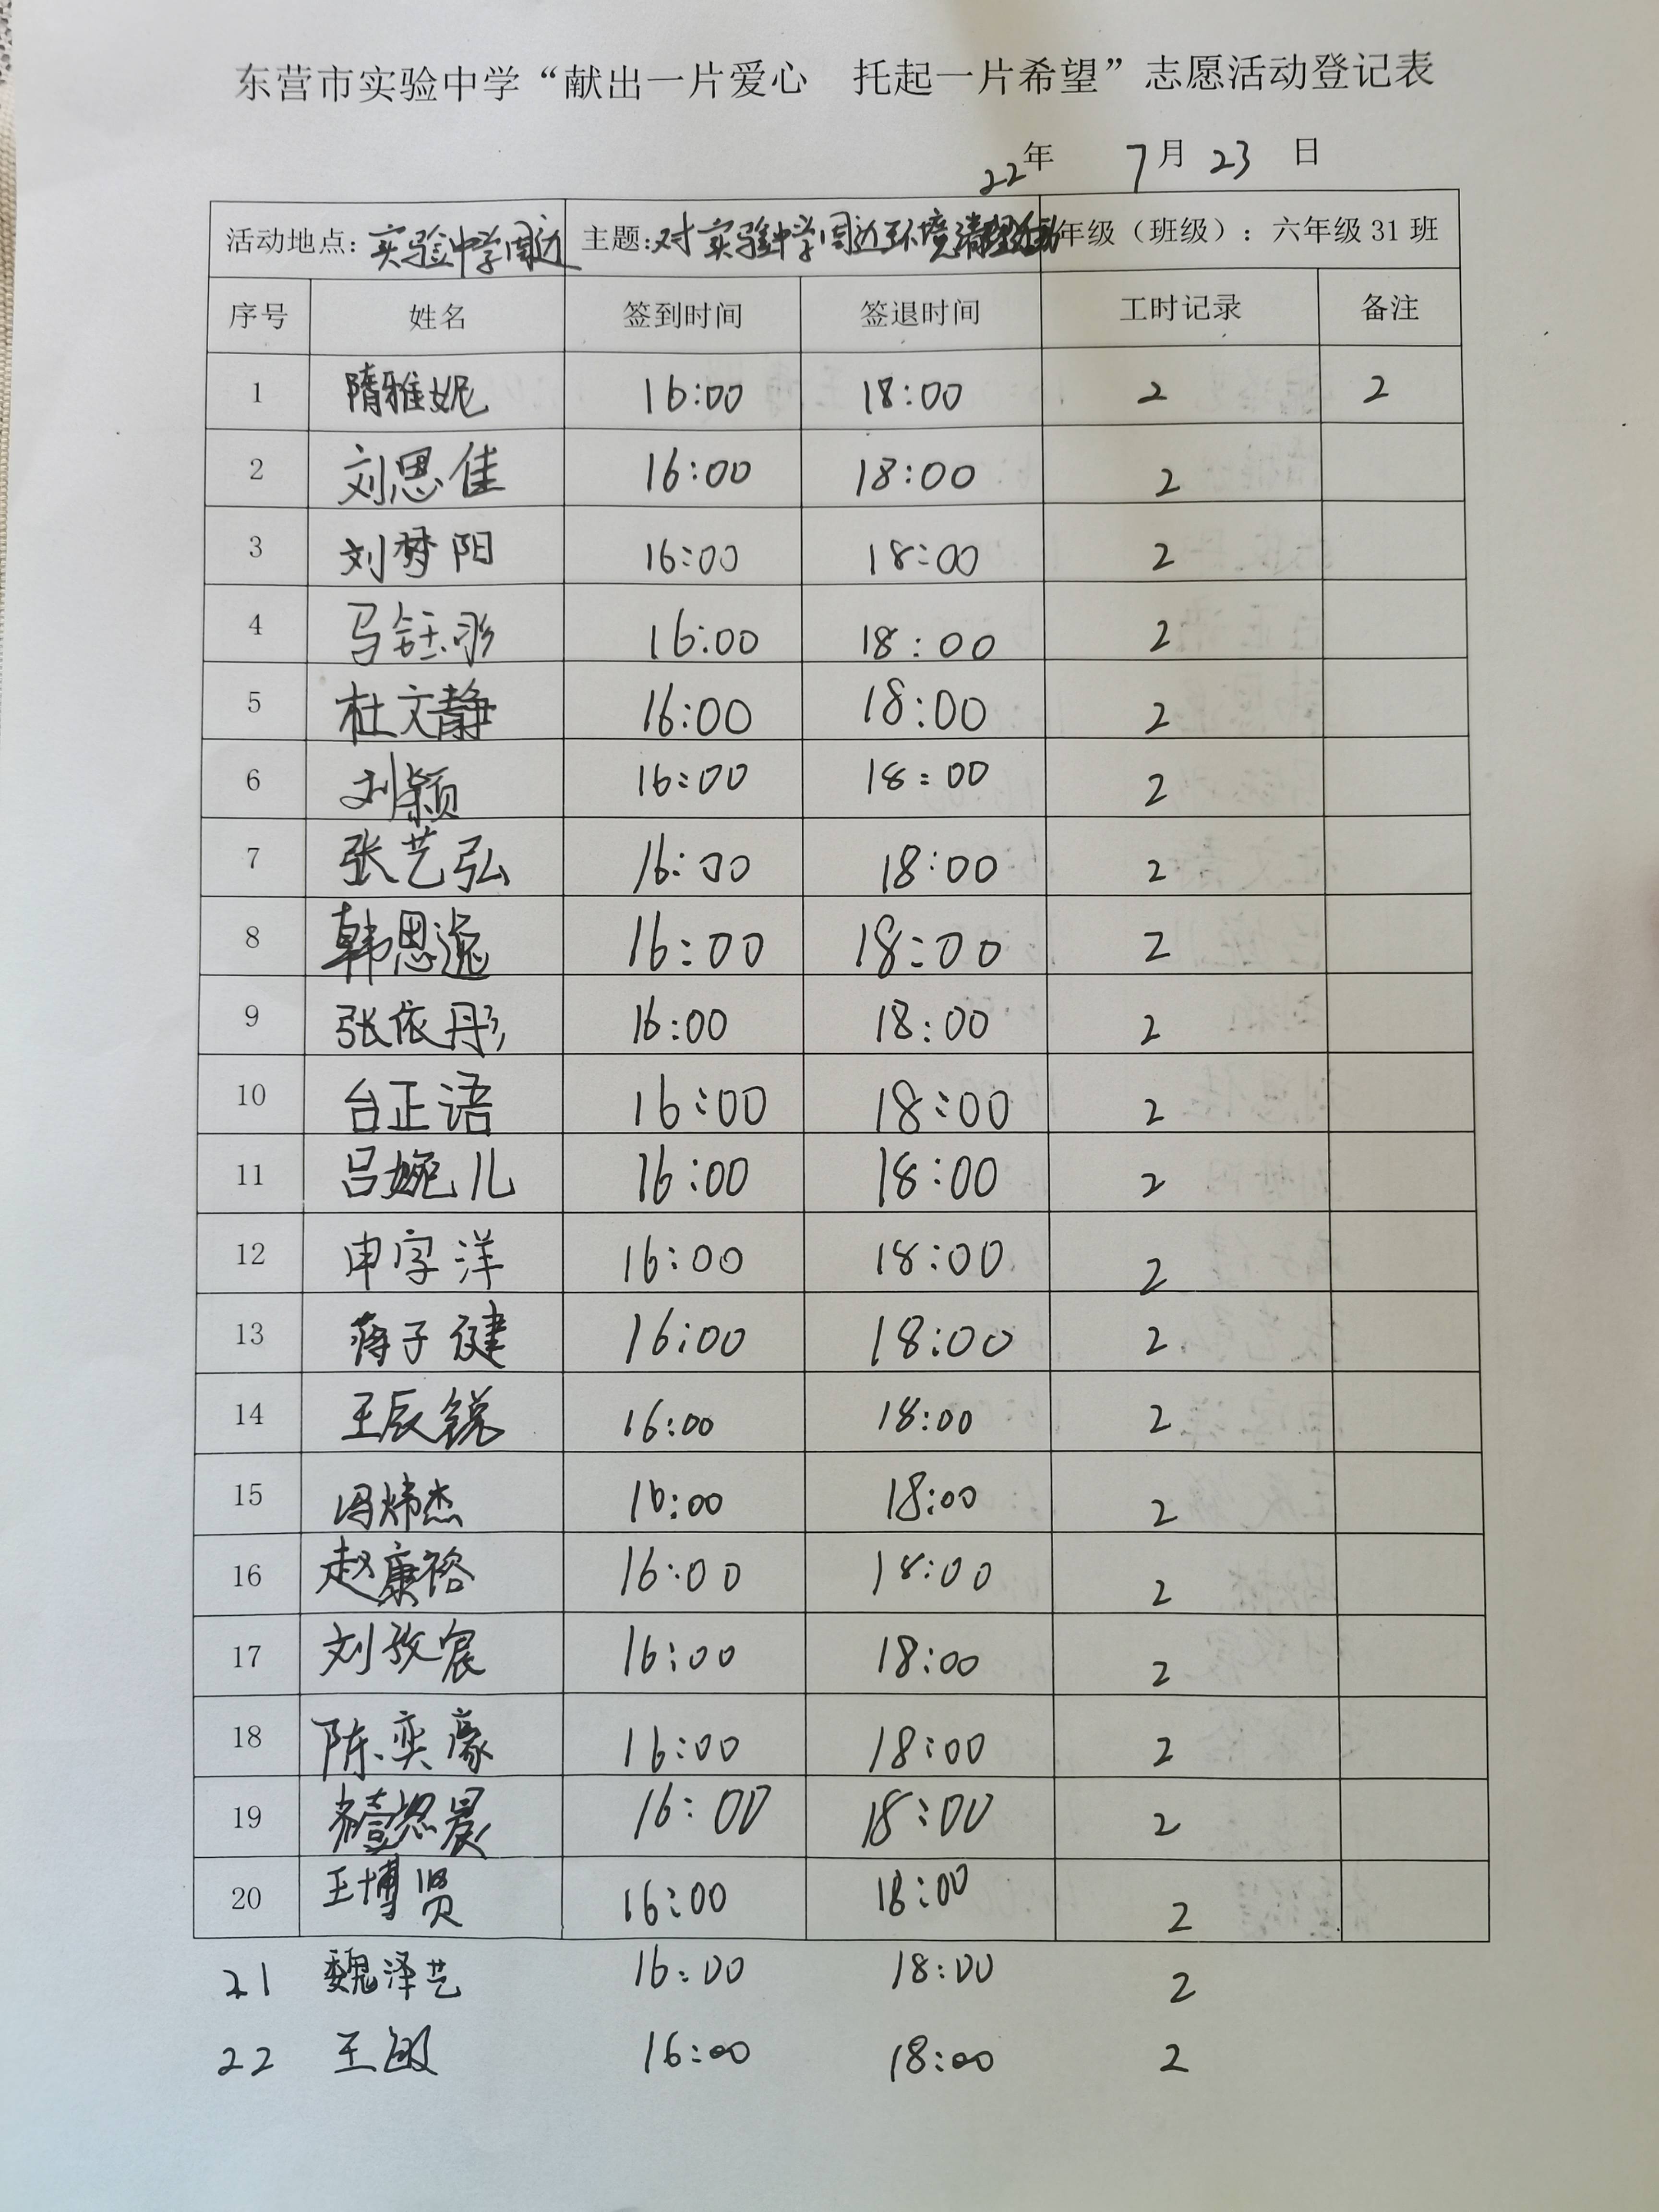 东营市实验中学“献出一片爱心 托起一片希望”志愿活动登记表
22年 7月 23 日
活动地点：实验中学周边 主题：对实验中学周边环境清理活动 年级（班级）：六年级31班
序号 姓名 签到时间 签退时间 工时记录 备注
1 隋雅妮 16:00 18:00 2 2
2 刘思佳 16:00 18:00 2
3 刘梦阳 16:00 18:00 2
4 马钰彤 16:00 18:00 2
5 杜文静 16:00 18:00 2
6 刘颖 16:00 18:00 2
7 张艺弘 16:00 18:00 2
8 韩思逸 16:00 18:00 2
9 张依彤 16:00 18:00 2
10 台正语 16:00 18:00 2
11 吕婉儿 16:00 18:00 2
12 申字洋 16:00 18:00 2
13 蒋子健 16:00 18:00 2
14 王辰锐 16:00 18:00 2
15 冯炜杰 16:00 18:00 2
16 赵康裕 16:00 18:00 2
17 刘孜宸 16:00 18:00 2
18 陈奕豪 16:00 18:00 2
19 16:00 18:00 2
20 王博贤 16:00 18:00 2
21 魏泽艺 16:00 18:00 2
22 王敏 16:00 18:00 2